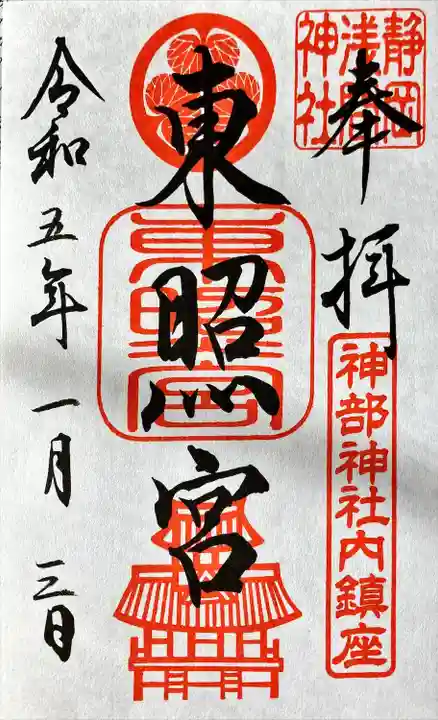 奉拝
静岡
浅間
神社
神部神社内鎮座
東照宮
東照宮
令和五年一月三日